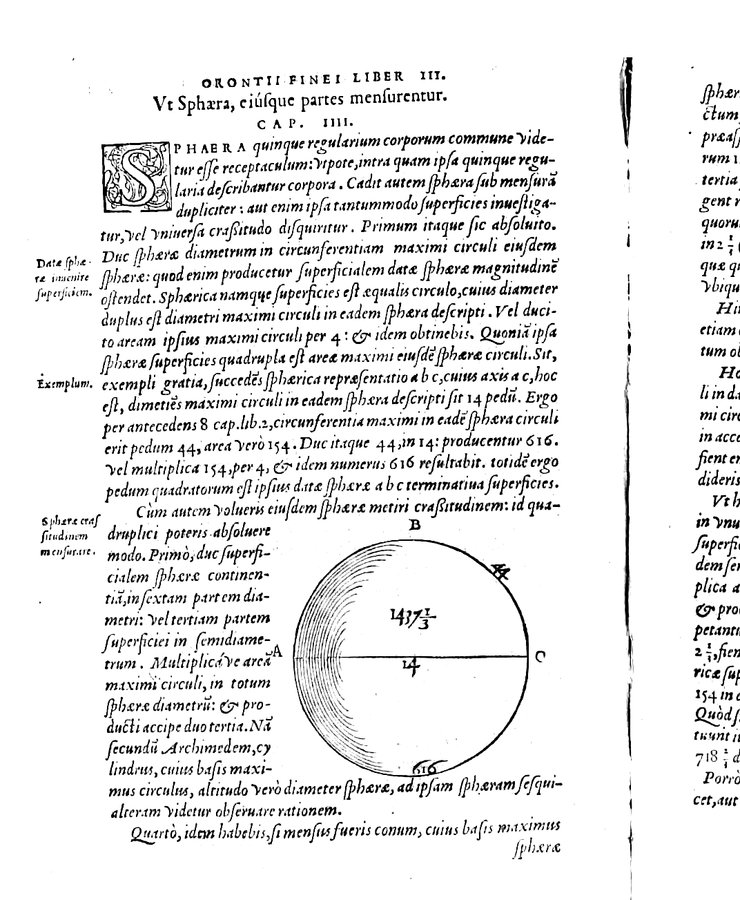 ORONTII FINEI LIBER III.
Vt Sphæra, eiúsque partes mensurentur.
CAP. IIII.
SPHAERA quinque regularium corporum commune vide-
tur esse receptaculum: vtpote, intra quam ipsa quinque regu-
laria describantur corpora. Cadit autem sphæra sub mensurā
dupliciter: aut enim ipsa tantummodo superficies inuestiga-
tur, vel vniuersa craßitudo disquiritur. Primum itaque sic absoluito.
Duc sphæræ diametrum in circunferentiam maximi circuli eiusdem
Datæ sphæ-
ræ inuenire
superficiem.
sphæræ: quod enim producetur superficialem datæ sphæræ magnitudinē
ostendet. Sphærica namque superficies est æqualis circulo, cuius diameter
duplus est diametri maximi circuli in eadem sphæra descripti. Vel duci-
to aream ipsius maximi circuli per 4: & idem obtinebis. Quoniā ipsa
sphæræ superficies quadrupla est areæ maximi eiusdē sphæræ circuli. Sit,
Exemplum.
exempli gratia, succedēs sphærica repræsentatio a b c, cuius axis a c, hoc
est, dimetiēs maximi circuli in eadem sphæra descripti sit 14 pedū. Ergo
per antecedens 8 cap. lib. 2, circunferentia maximi in eadē sphæra circuli
erit pedum 44, area verò 154. Duc itaque 44, in 14: producentur 616.
Vel multiplica 154, per 4, & idem numerus 616 resultabit. totidē ergo
pedum quadratorum est ipsius datæ sphæræ a b c terminatiua superficies.
Cùm autem volueris eiusdem sphæræ metiri craßitudinem: id qua-
Sphæræ cras
situdinem
mensurare.
druplici poteris absoluere
modo. Primò, duc superfi-
cialem sphæræ continen-
tiā, in sextam partem dia-
metri: vel tertiam partem
superficiei in semidiame-
trum. Multiplicáve areā
maximi circuli, in totum
sphæræ diametrū: & pro-
ducti accipe duo tertia. Nā
secundū Archimedem, cy
lindrus, cuius basis maxi-
B
1437 1/3
A
C
14
616
mus circulus, altitudo verò diameter sphæræ, ad ipsam sphæram sesqui-
alteram videtur obseruare rationem.
Quartò, idem habebis, si mensus fueris conum, cuius basis maximus
sphæræ
sphær
ctum
præas
rum
tertia
gent
quoru
in 2 1/3
quæ
vbiqu
etiam
tum ob
li in da
mi circ
in acce
fient e
dideris
Vt h
in vnu
superfi
dem se
plica a
& pro
petant
2 1/3, fien
ricæ sup
154 in
Quòd s
718 2/3 d
Porrò
cet, aut